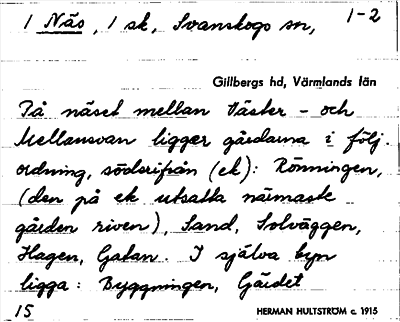 1 Näs, 1 sk, Svanskogs sn, 1-2
Gillbergs hd, Värmlands län
På näset mellan Väster- och
Mellansvan ligger gårdarna i följ.
ordning, söderifrån (ek): Rönningen,
(den på ek utsatta närmaste
gården riven), Sand, Solväggen,
Hagen, Gatan. I själva byn
ligga: Byggningen, Gärdet
15 HERMAN HULTSTRÖM c. 1915